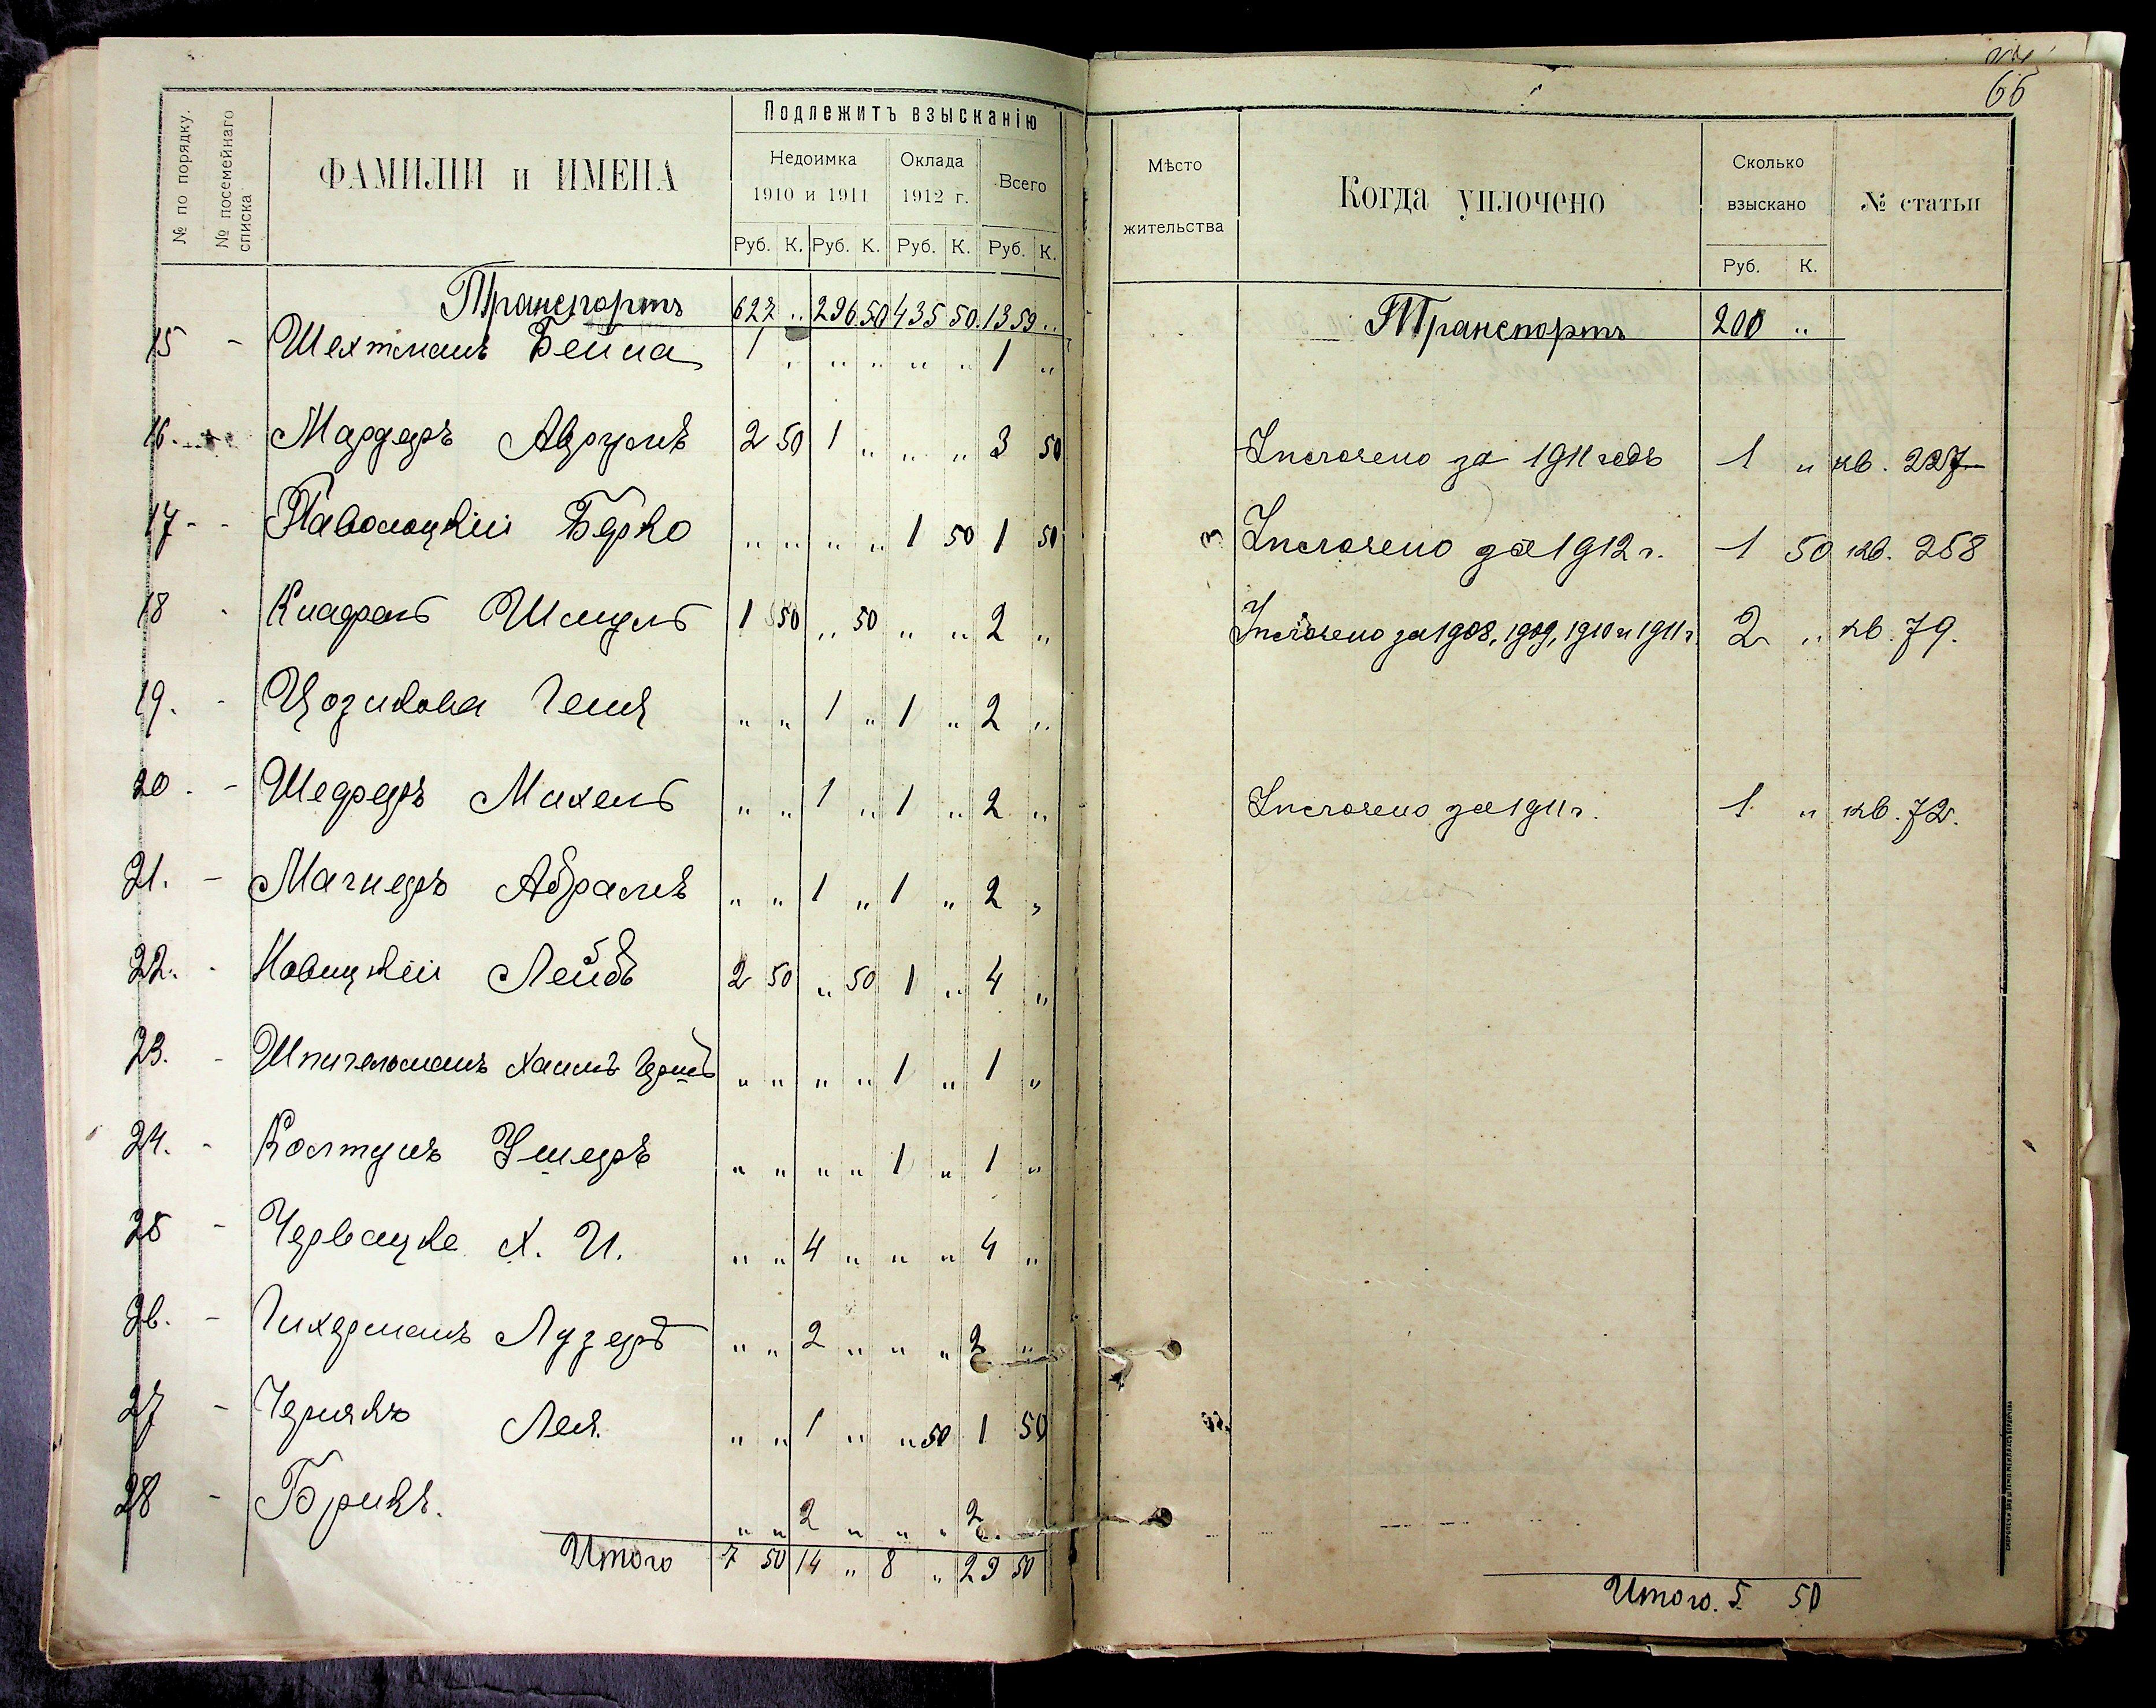 66
№ по порядку.
№ посемейнаго списка
ФАМИЛІИ и ИМЕНА
Подлежитъ взысканію
Недоимка
1910 и 1911
Оклада
1912 г.
Всего
Руб. К. Руб. К. Руб. К. Руб. К.
Мѣсто
жительства
Когда уплочено
Сколько
взыскано
Руб. К.
№ статьи
Транспортъ 627 „ 296 50 435 50 1359 „ Транспортъ 200 „
15 - Шехтманъ Бейла 1 „ „ „ „ „ 1 „
16. - Мардеръ Аврумъ 2 50 1 „ „ „ 3 50 Уплочено за 1911 годъ 1 „ кв. 227
17 - - Паволоцкій Берко „ „ „ „ 1 50 1 50 Уплочено за 1912 г. 1 50 кв. 258
18 - Шмуль 1 50 „ 50 „ „ 2 „ Уплочено за 1908, 1909, 1910 и 1911 г. 2 „ кв. 79.
19. - Цозикова Геня „ „ 1 „ 1 „ 2 „
20. - Шедреръ Михель „ „ 1 „ 1 „ 2 „ Уплочено за 1911 г. 1 „ кв. 72.
21. - Магнеръ Абрамъ „ „ 1 „ 1 „ 2 „
22. - Новицкій Лейбъ 2 50 „ 50 1 „ 4 „
23. - Шпигельманъ Хаимъ Гершъ „ „ „ „ 1 „ 1 „
24. - Колтунъ Ушеръ „ „ „ „ 1 „ 1 „
25 - Х. И. „ „ 4 „ „ „ 4 „
26. - Гихерманъ Лузеръ „ „ 2 „ „ „ 2 „
27 - Чернякъ Лея. „ „ 1 „ „ 50 1 50
28 - Брикъ. „ „ 2 „ „ „ 2 „
Итого 7 50 14 „ 8 „ 29 50
Итого. 5 50